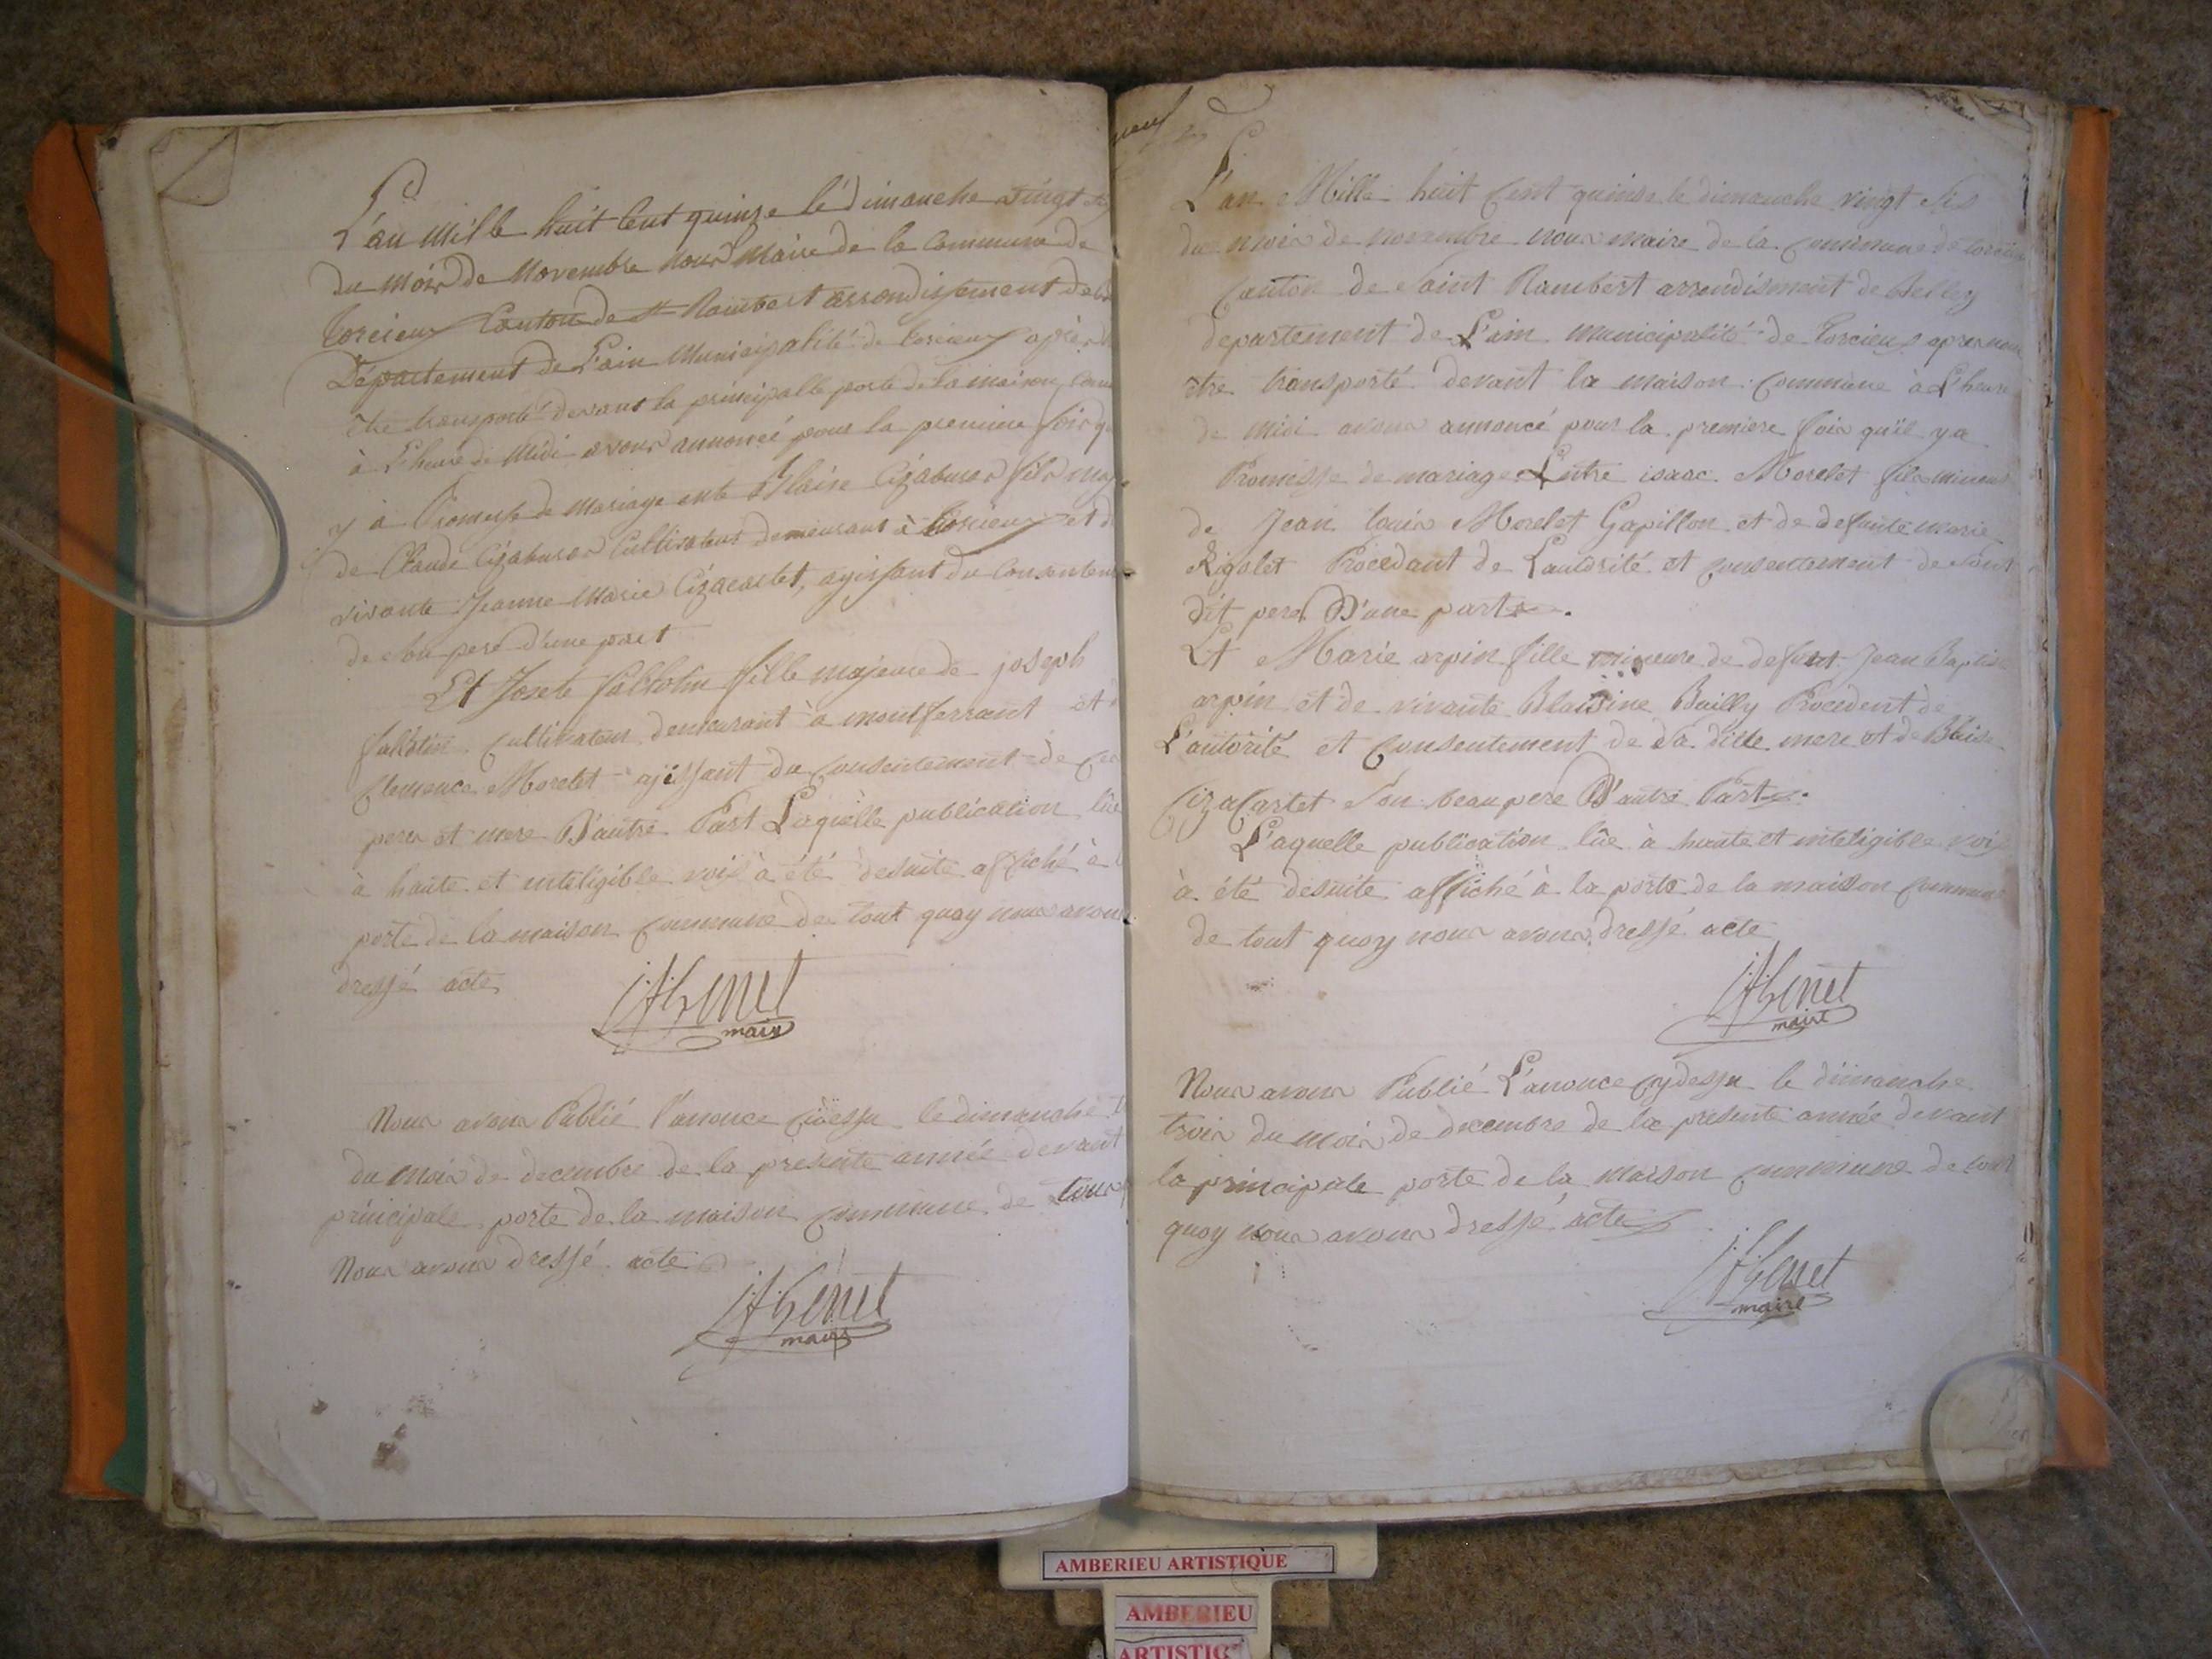 L'an Mille huit Cent quinze le dimanche vingt six
du mois de Novembre nous Maire de la Commune de
torcieux Canton de st Rambert arrondissement de
Département de l'ain Municipalité de torcieux après
être transporté devant la principalle porte de la maison
à L'heure de Midi avons annoncé pour la premiere fois
y a Promesse de mariage entre Blaise Cizabuser fils
de Claude Cizabuser Cultivateur demeurant à torcieux et
vivante Jeanne Marie Cizacartet, agissant du Consentem
de son pere d'une part
Et Josete fille majeure de joseph
Cultivateur demeurant à montferrant et
Clemence Morelet agissant du Consentement de
pere et mere D'autre Part Laquelle publication lüe
à haute et inteligible voix à été desuite affiché à
porte de la maison Commune de tout quoy nous avons
dressé acte
maire
Nous avons Publié l'anonce le dimanche
du Mois de decembre de la presente année devant
principale porte de la maison Commune de tout
Nous avons dressé acte
maire
L'an Mille huit Cent quinse le dimanche vingt Six
du mois de novembre nous maire de la Commune de torcieux
Canton de Saint Rambert arrondisment de belley
departement de L'ain municipalité de torcieux apres nous
etre transporté devant la maison Commune à L'heure
de midi avons annoncé pour la premiere fois qu'il y a
Promesse de mariage Entre isaac Morelet fils mineur
de Jean louis Morelet Gapillon et de defunte marie
Rigolet Procedant de L'autorité et Consentement de Sont
dit pere D'une part
Et Marie arpin fille mineure de defunt Jean Baptiste
arpin et de vivante Blaisine Bailly Procedent de
L'autorité et Consentement de Sa ditte mere et de Blaise
CizaCartet Son beau pere D'autre Part
L'aquelle publication lüe à haute et inteligible voix
à été desuite affiché à la porte de la maison Commune
de tout quoy nous avons dressé acte
maire
Nous avons Publié L'anonce Cydessu le dimanche
trois du mois de decembre de la presente année devant
la principale porte de la maison Commune de tout
quoy nous avons dressé acte
maire
AMBERIEU ARTISTIQUE
AMBERIEU